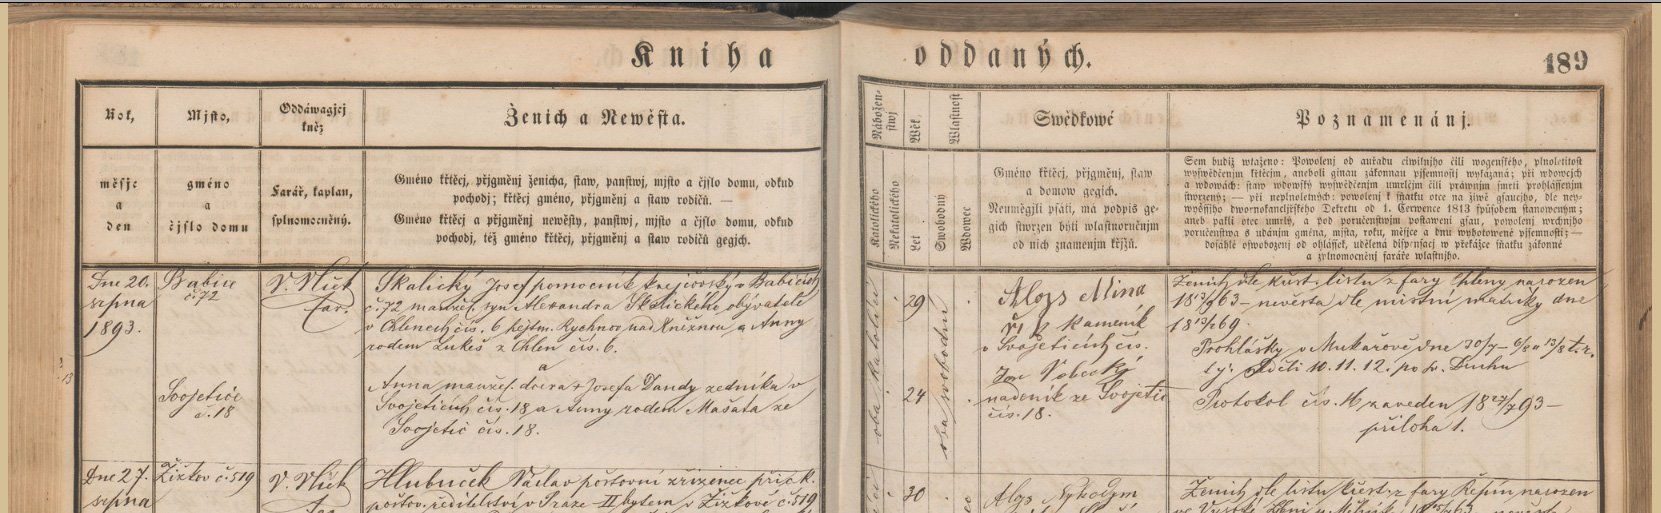 Kniha oddaných.
189
Rok,
měsjc
a
den
Mjsto,
gméno
a
čjslo domu
Oddáwagjcj
kněz
Farář, kaplan,
splnomocněný.
Ženich a Newěsta.
Gméno křtěcj, přjgměnj ženicha, staw, panstwj, mjsto a čjslo domu, odkud
pochodj; křtěcj gméno, přjgměnj a staw rodičů. —
Gméno křtěcj a přjgměnj newěsty, panstwj, mjsto a čjslo domu, odkud
pochodj, též gméno křtěcj, přjgměnj a staw rodičů gegjch.
Nábožen-
stwj
Katolického
Nekatolického
Wěk.
Let
Wlastnost
Swobodný
Wdowec
Swědkowé
Gméno křtěcj, přjgměnj, staw
a domow gegich.
Neumějgjli psáti, má podpis ge-
gich stwrzen býti wlastnoručnjm
od nich znamenjm křjžů.
Poznamenánj.
Sem budiž wtaženo: Powolenj od auřadu ciwilnjho čili wogenského, plnoletitost
wyswědčenjm křticjm, anebolí ginau zákonnau pjsemnostj wykázaná; při wdowcjch
a wdowách: staw wdowský wyswědčenjm umrlčjm čili práwnjm smrti prohlášenjm
stwrzený; — při neplnoletých: powolenj k sňatku otce na žiwě gsaucjho, dle ney-
wyššjho dwornokancelářského Dekretu od 1. Července 1813 spůsobem stanoweným;
aneb pakli otec umřel, a pod poručenstwjm postawenj gsau, powolenj wrchnjho
poručenstwa s udánjm gména, mjsta, roku, měsjce a dnu wyhotowené pjsemnosti; —
dosáhlé oswobozenj od ohlášek, udělená dispensacj w překážce sňatku zákonné
a zplnomocněnj faráře wlastnjho.
Dne 20.
srpna
1893.
Babice
č. 72
V. Vlček
far.
Skalický Josef pomocník krejčovský v Babicích
č. 72 manžel. syn Alexandra Skalického, obyvatele
v Chlenech čís. 6 hejtm. Rychnov nad Kněžnou a Anny
rodem Lukeš z Chlen čís. 6.
a
Svojetice
č. 18
Anna manžel. dcera + Josefa Dandy zedníka v
Svojeticích čís. 18 a Anny rodem Mašata ze
Svojetic čís. 18.
oba katolíci
29
24
oba svobodní
Alojs Mina
kameník
v Svojeticích čís.
Jan
nádeník ze Svojetic
čís. 18.
Ženich dle křest. listu z fary Chleny narozen
1863 – nevěsta dle místní matriky dne
1869.
Prohlášky v Mukařově dne 30/7 – 6/8 a 13/8 t. r.
tj. neděli 10. 11. 12. po sv. Duchu
Protokol čís. 16 zaveden 18 27/7 93 –
příloha 1.
Dne 27.
srpna
Žižkov č. 519
V. Vlček
far
Hlubuček Václav poštovní zřízenec při c. k.
poštov. ředitelství v Praze – II bytem v Žižkově č. 519
30
Alojs Nykodym
Ženich dle listu křest. z fary Řepín narozen